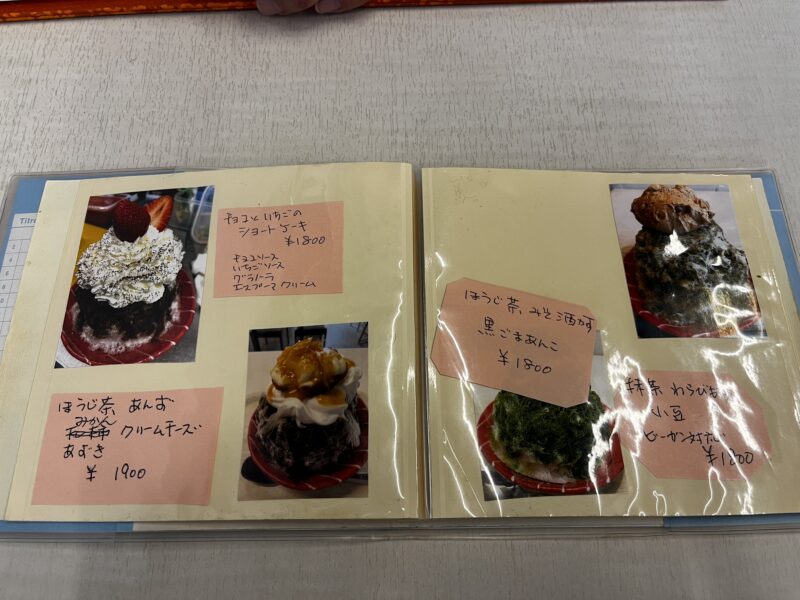 Titre
チョコといちごの
ショートケーキ
¥1800
チョコソース
いちごソース
グラノーラ
エスプーマクリーム
ほうじ茶 あんず
みかん
クリームチーズ
あずき
¥ 1900
ほうじ茶、みそ酒かす
黒ごまあんこ
¥1800
抹茶 わらびもち
小豆
ビーガン対応